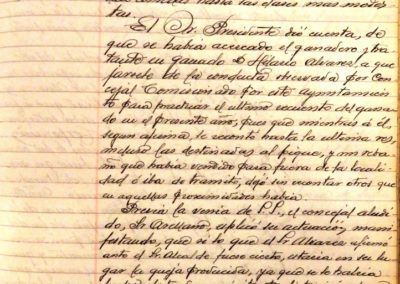 hasta las clases mas modes-
tas.
El Sr. Presidente dió cuenta, de
que se habia acercado el ganadero y tra-
tante en ganado D. Hilario Alvarez, a que-
jarse de la conducta observada por Con-
cejal Comisionado por este ayuntamien-
to para practicar el ultimo recuento del gana-
do en el presente año, pues que mientras á él,
segun afirma, le contó hasta la ultima res,
incluso las destinadas al pique, y un reba-
ño que habia vendido para fuera de la locali-
dad ó iba de transito, dejó sin contar otros que
en aquellas proximidades habia.
Previa la venia de S.S., el concejal aludi-
do, Sr. Arellano, esplicó su actuación, mani-
festando, que si lo que el Sr. Alvarez afirmó
ante el Sr. Alcalde fuese cierto, estaria en su lu-
gar la queja producida, ya que se le habria